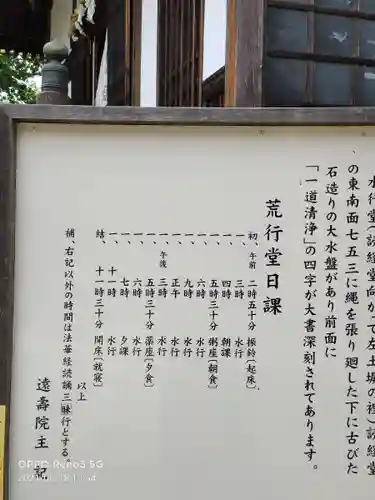 水行堂(読経堂向かって左土城の裡)読経堂
の東南面七五三に縄を張り廻した下に古びた
石造りの大水盤があり前面に
「一道清浄」の四字が大書深刻されてあります。
荒行堂日課
初、午前 二時五十分 振鈴〔起床〕
一、三時 水行
一、四時 朝課
一、五時三十分 粥座〔朝食〕
一、六時 水行
一、九時 水行
一、正午 水行
一、午後 三時 水行
一、五時三十分 薬座〔夕食〕
一、六時 水行
一、七時 夕課
一、十時 水行
結、十一時三十分 開床〔就寝〕
以上
補、右記以外の時間は法華経読誦三昧行とする。
遠壽院主 記
OPPO Reno3 5G